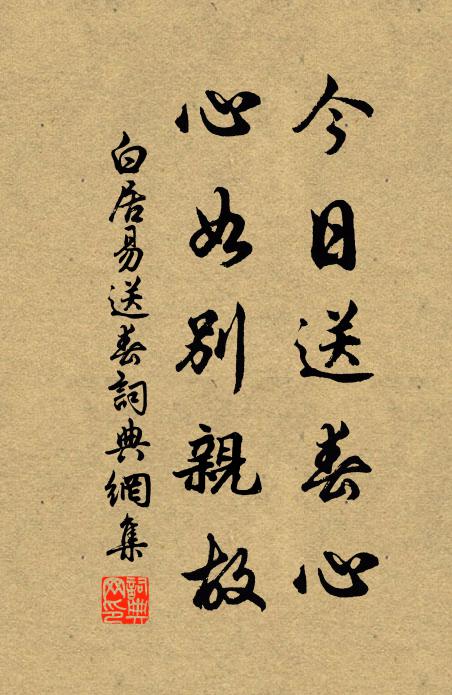 今日送春心
心如別親故
白居易送春詞典網集
詞典网印